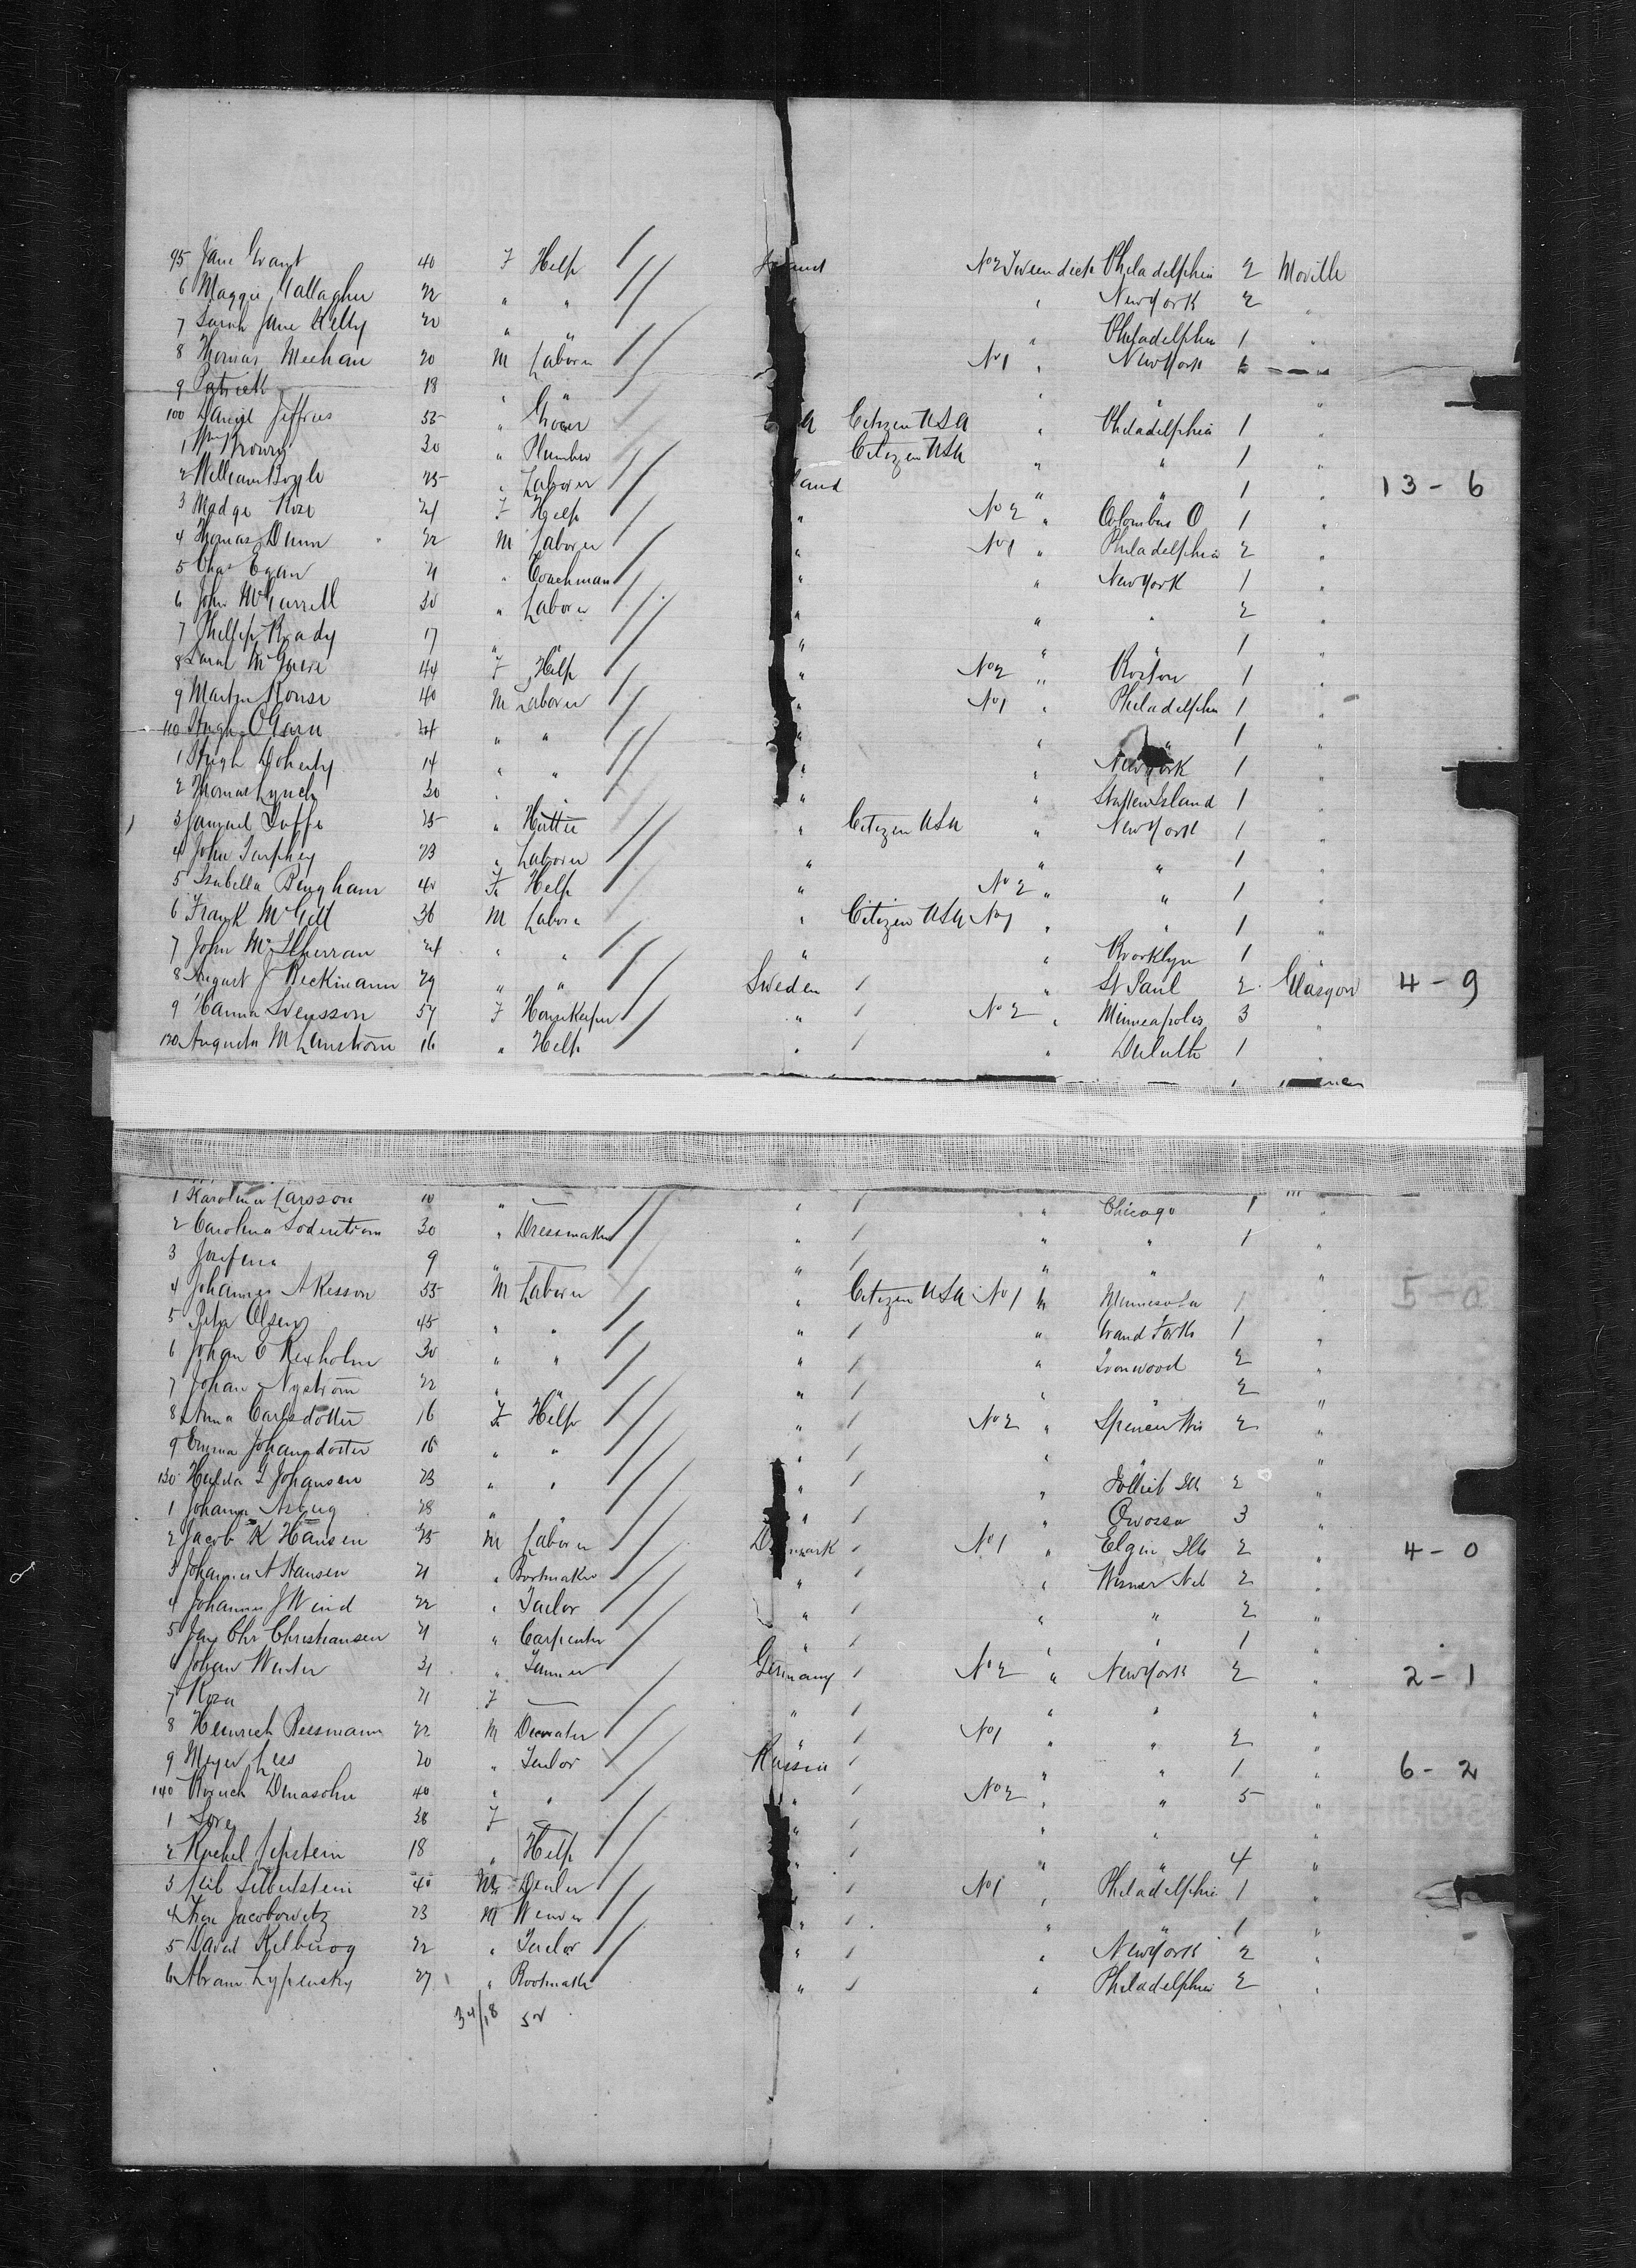 95 Jane Grant 40 F Help No 2 Tween deck Philadelphia 2 Moville
6 Maggie Gallagher 22 " " " New York 2 "
7 Sarah Jane Kelly 20 " " " Philadelphia 1 "
8 Thomas Meehan 20 M Laborer No 1 " New York
9 Patrick 18 " " " " "
100 Daniel Jeffries 55 " Citizen USA " Philadelphia 1 "
1 Wm 30 " Plumber Citizen USA " " 1 "
2 William Boyle 25 " Laborer land " " 1 " 13 - 6
3 Madge 24 F Help " No 2 " Colombus O 1 "
4 Thomas Dunn 22 M Laborer " No 1 " Philadelphia 2 "
5 Chas Egan 21 " Coachman " " New York 1 "
6 John 30 " Laborer " " " 2 "
7 Phillip Brady 17 " " " " " 1 "
8 Sarah McGuire 44 F Help " No 2 " Boston 1 "
9 Martin Rouse 40 M Laborer " No 1 " Philadelphia 1 "
110 Hugh 24 " " " " " 1 "
1 Hugh Doherty 14 " " " " New York 1 "
2 Thomas Lynch 30 " " " " Statten Island 1 "
3 Samuel 25 " " Citizen USA " New York 1 "
4 John 23 " Laborer " " " 1 "
5 Isabella Bingham 40 F Help " No 2 " " 1 "
6 Frank McGill 36 M Labore " Citizen USA No 1 " " 1 "
7 John 24 " " " " Brooklyn 1 "
8 August J Beckmann 29 " " Sweden / " St Paul 2 Glasgow 4 - 9
9 Hanna Svensson 54 F Housekeeper " / No 2 " Minneapolis 3 "
120 Augusta M 16 " Help " / " Duluth 1 "
1 Karolina Larsson 10 " — " / " Chicago 1 "
2 Carolina Soderstrom 30 " Dressmaker " / " " 1 "
3 Josefina 9 " — " / " " "
4 Johannes Akesson 55 M Laborer " Citizen USA No 1 " Minnesota 1 " 5 - 0
5 Peter Olsen 45 " " " / " Grand Forks 1 "
6 Johan 30 " " " / " Ironwood 2 "
7 Johan Nystrom 22 " " " / " " 2 "
8 Anna Carlsdotter 16 F Help " / No 2 " Spencer Wis 2 "
9 Emma Johansdotter 16 " " " / " " "
130 Hulda G Johansen 23 " " " / " Jolliet Ills 2 "
1 Johanna 28 " " " / " Owosso 3 "
2 Jacob K Hansen 25 M Laborer Denmark / No 1 " Elgin Ills 2 " 4 - 0
3 Johannes A Hansen 21 " Bootmaker " / " Wisner Neb 2 "
4 Johannes J Wind 22 " Tailor " / " " 2 "
5 Jens Chr Christiansen 21 " Carpenter " / " " 1 "
6 Johan 31 " Tanner Germany / No 2 " New York 2 " 2 - 1
7 Rosa 21 F — " / " " "
8 Heinrich 22 M Decorator " / No 1 " " 2 "
9 Meyer 20 " Tailor Russia / " " 1 " 6 - 2
140 40 " " " / No 2 " " 5 "
1 38 F — " / " " "
2 Rachel Epstein 18 " Help " / " " 4 "
3 Silberstein 40 M Dealer " / No 1 " Philadelphia 1 "
4 Jacobowitz 23 M " / " " 1 "
5 David 22 " Tailor " / " New York 2 "
6 Abram Lypensky 27 " Bootmaker " / " Philadelphia 2 "
34/18